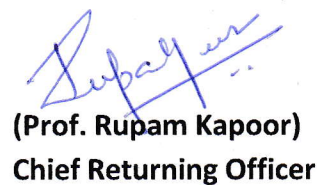 (Prof. Rupam Kapoor)
Chief Returning Officer